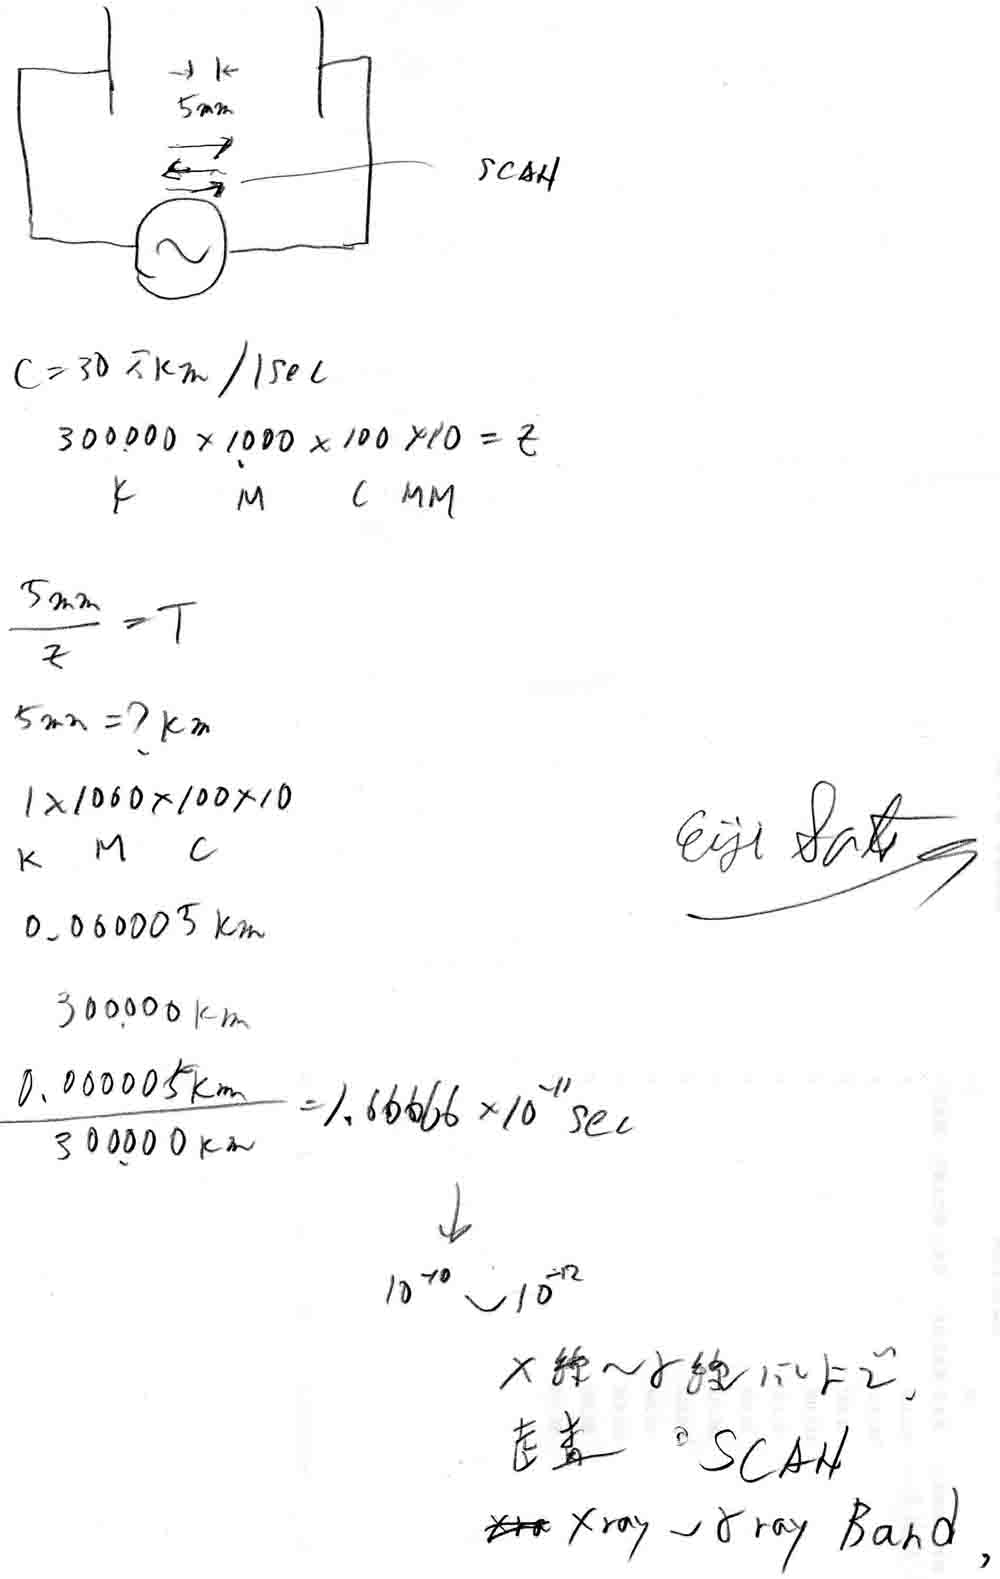 5mm
SCAN
C=30万km/1sec
300000×1000×100×10=Z
K M C MM
5mm
Z
=T
5mm=?km
1×1000×100×10
K M C
0.000005km
300000km
0.000005km
300000km
=1.66666×10⁻¹¹sec
↓
10⁻¹⁰~10⁻¹²
X線~γ線
走査 SCAN
Xray~γray Band,
Eiji Sato